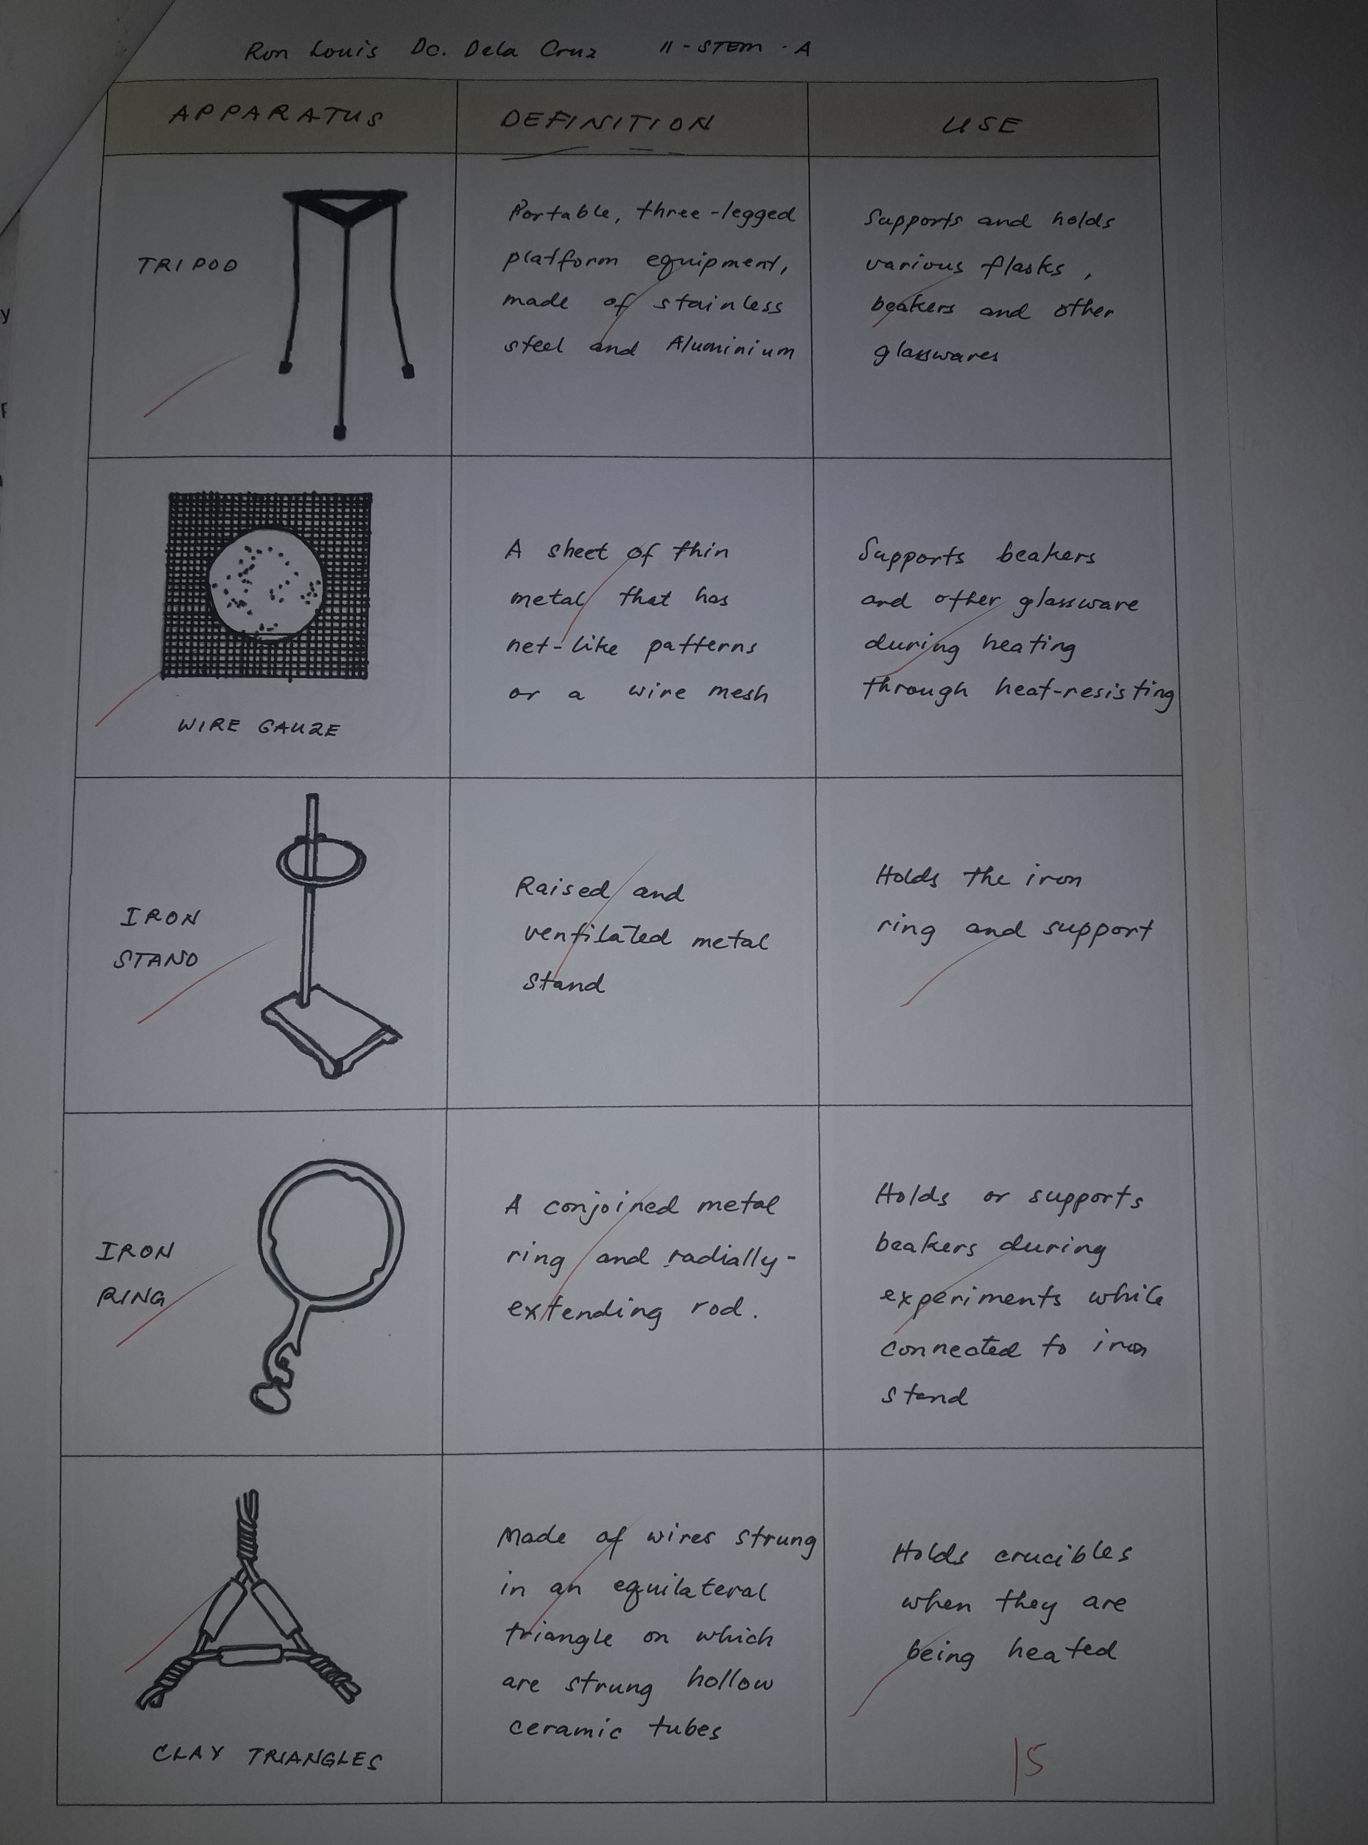 Ron Louis Dc. Dela Cruz 11-STEM-A
APPARATUS DEFINITION USE
TRIPOD
Portable, three-legged
platform equipment,
made of stainless
steel and Aluminium
Supports and holds
various flasks,
beakers and other
glasswares
WIRE GAUZE
A sheet of thin
metal that has
net-like patterns
or a wire mesh
Supports beakers
and other glassware
during heating
through heat-resisting
IRON
STAND
Raised and
ventilated metal
stand
Holds the iron
ring and support
IRON
RING
A conjoined metal
ring and radially-
extending rod.
Holds or supports
beakers during
experiments while
connected to iron
stand
CLAY TRIANGLES
Made of wires strung
in an equilateral
triangle on which
are strung hollow
ceramic tubes
Holds crucibles
when they are
being heated
15